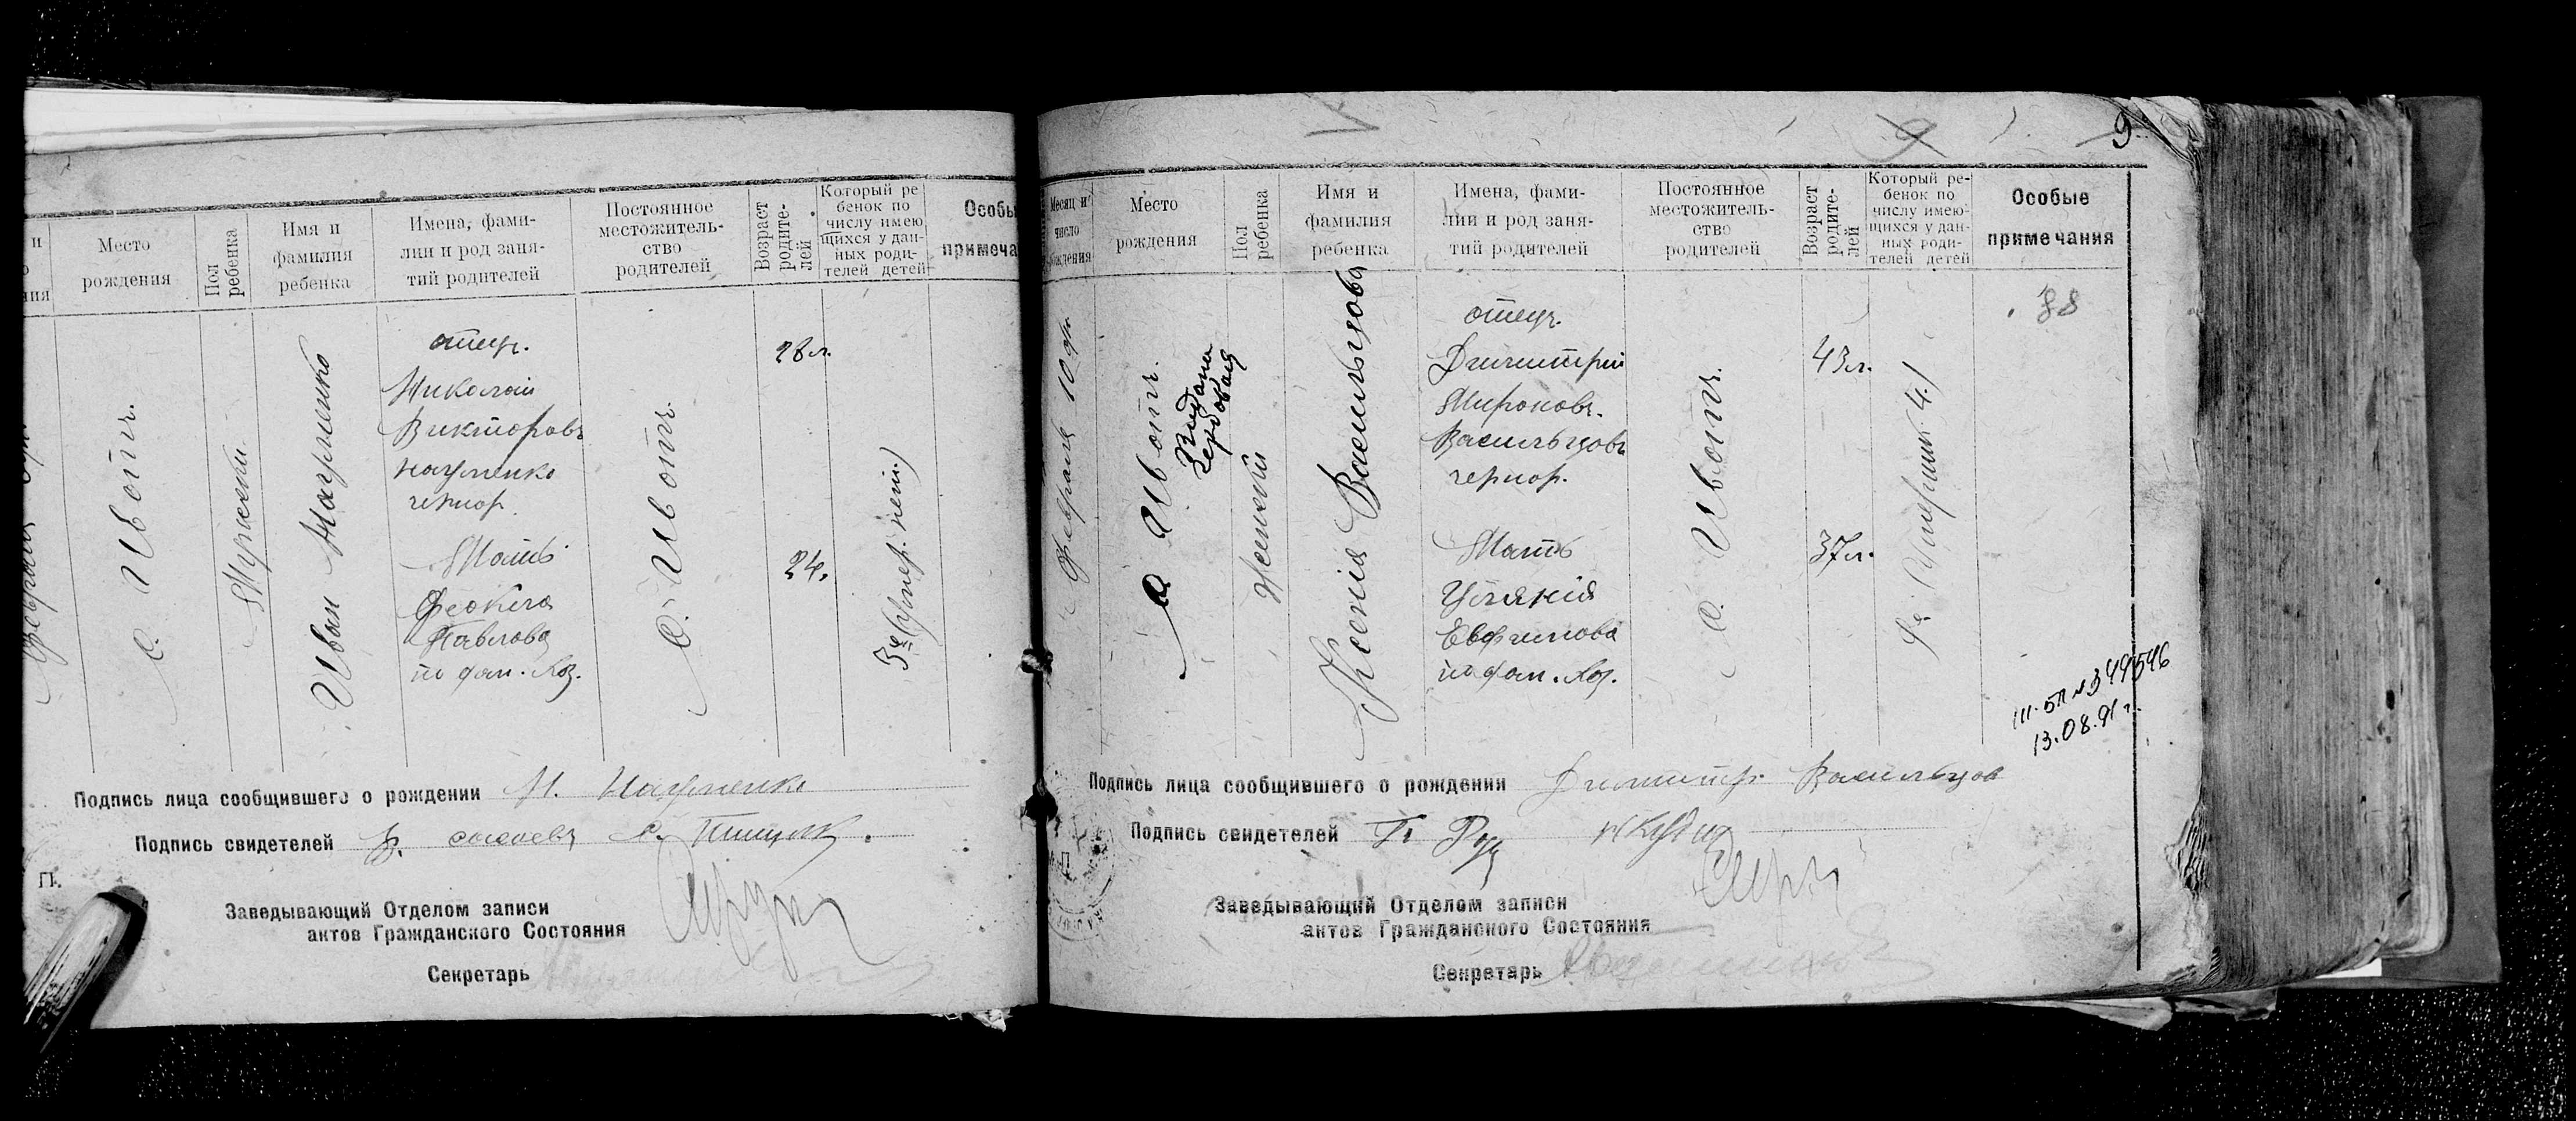 и
Место
рождения
Пол
ребенка
Имя и
фамилия
ребенка
Имена, фами-
лии и род заня-
тий родителей
Постоянное
местожитель-
ство
родителей
Возраст
родите-
лей
Который ре
бенок по
числу имею
щихся у дан-
ных роди-
телей детей
Особы
примеча
с. Ивотъ.
Мужской
Иван Науменко
отец.
Николай
Викторовъ
науменко
чернор.
Мать
Феокла
Павлова
по дом. хоз.
с. Ивотъ.
28 л.
24.
Подпись лица сообщившего о рождении Н. Науменко
Подпись свидетелей
П.
Заведывающий Отделом записи
актов Гражданского Состояния
Секретарь
9
Месяц и
число
рождения
Место
рождения
Пол
ребенка
Имя и
фамилия
ребенка
Имена, фами-
лии и род заня-
тий родителей
Постоянное
местожитель-
ство
родителей
Возраст
родите-
лей
Который ре-
бенок по
числу имею-
щихся у дан-
ных роди-
телей детей
Особые
примечания
Февраля 10 дн.
с. Ивотъ.
женский
Ксенія Васильцова
отец.
Димитрий
Мироновъ.
Васильцовъ
чернор.
Мать
Евфимова
по дом. хоз.
с. Ивотъ.
43 л.
37 л.
88
III-БП № 349546
13.08.91 г.
Подпись лица сообщившего о рождении Димитр. Васильцов
Подпись свидетелей
Заведывающий Отделом записи
актов Гражданского Состояния
Секретарь